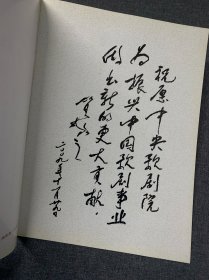 祝愿中央歌剧院
为振兴中国歌剧事业
做出新的更大贡献．
贺敬之
二〇〇九年十一月廿九日